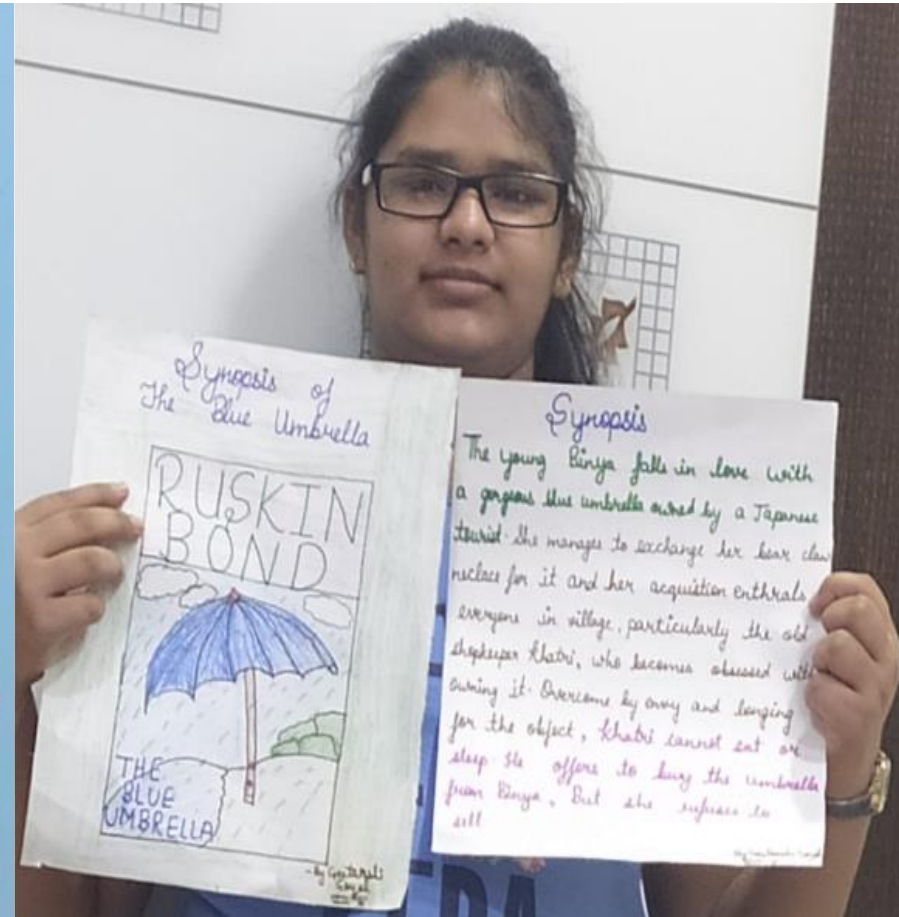 Synopsis of
The Blue Umbrella
RUSKIN
BOND
THE
BLUE
UMBRELLA
- By Geetanjali
Goyal
Synopsis
The young Binya falls in love with
a gorgeous blue umbrella owned by a Japanese
tourist. She manages to exchange her bear claw
neclace for it and her acquistion enthrals
everyone in village, particularly the old
shopkeeper Khatri, who becomes obsessed with
owning it. Overcome by envy and longing
for the object, Khatri cannot eat or
sleep. He offers to buy the umbrella
from Binya, But she refuses to
sell